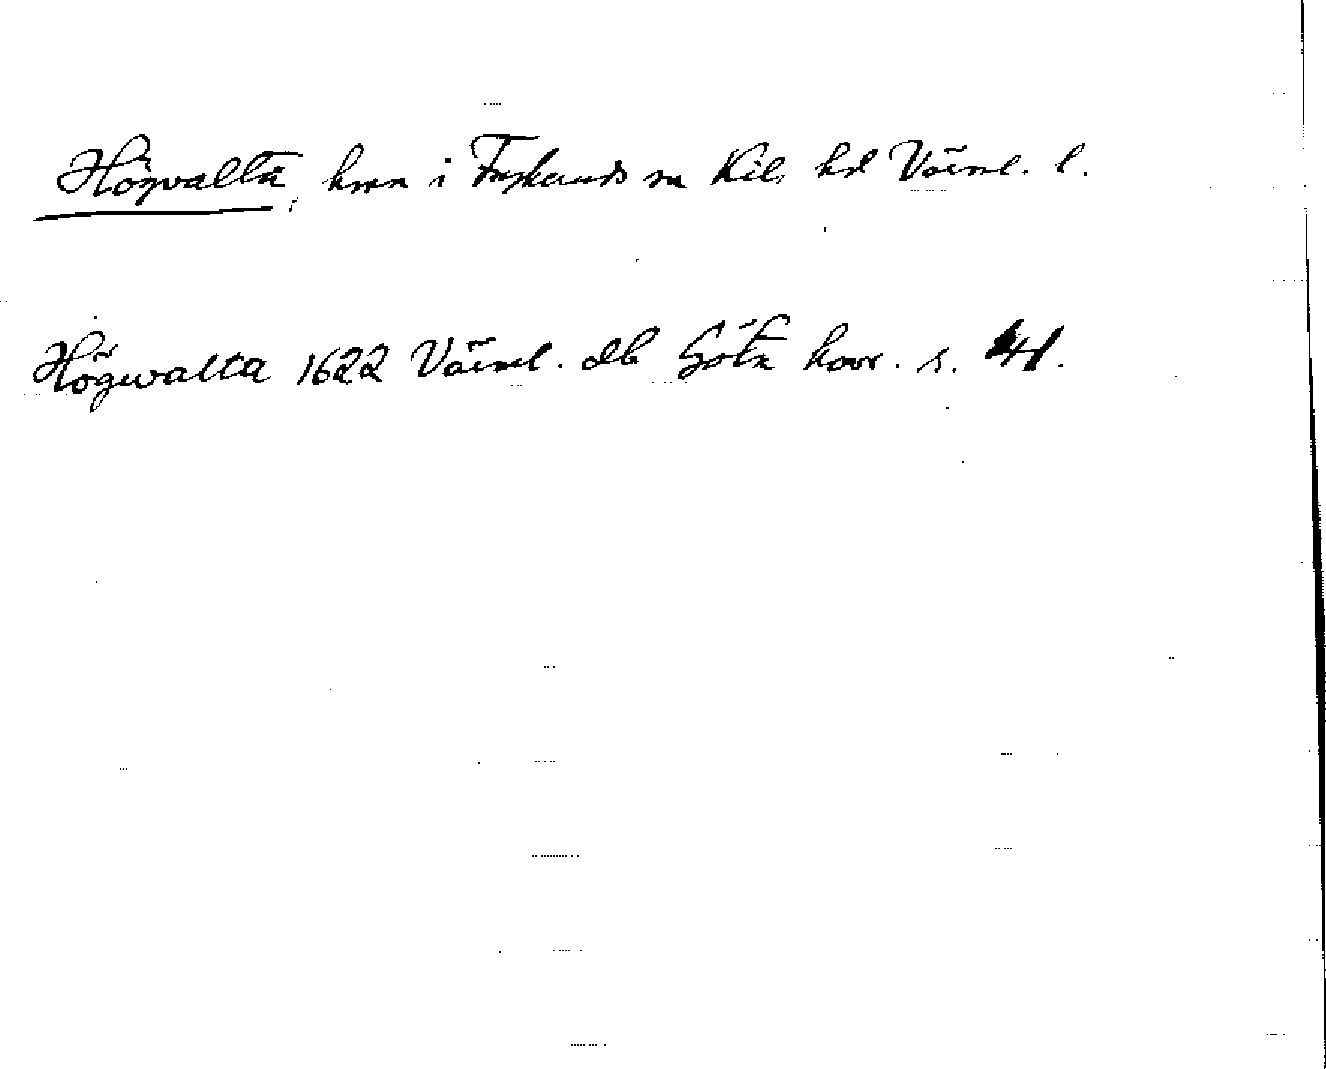 Högvalta, hmn i Frykeruds sn Kils hd Värml. l.
Högwalta 1622 Värml. db Göta hovr. s. 41.